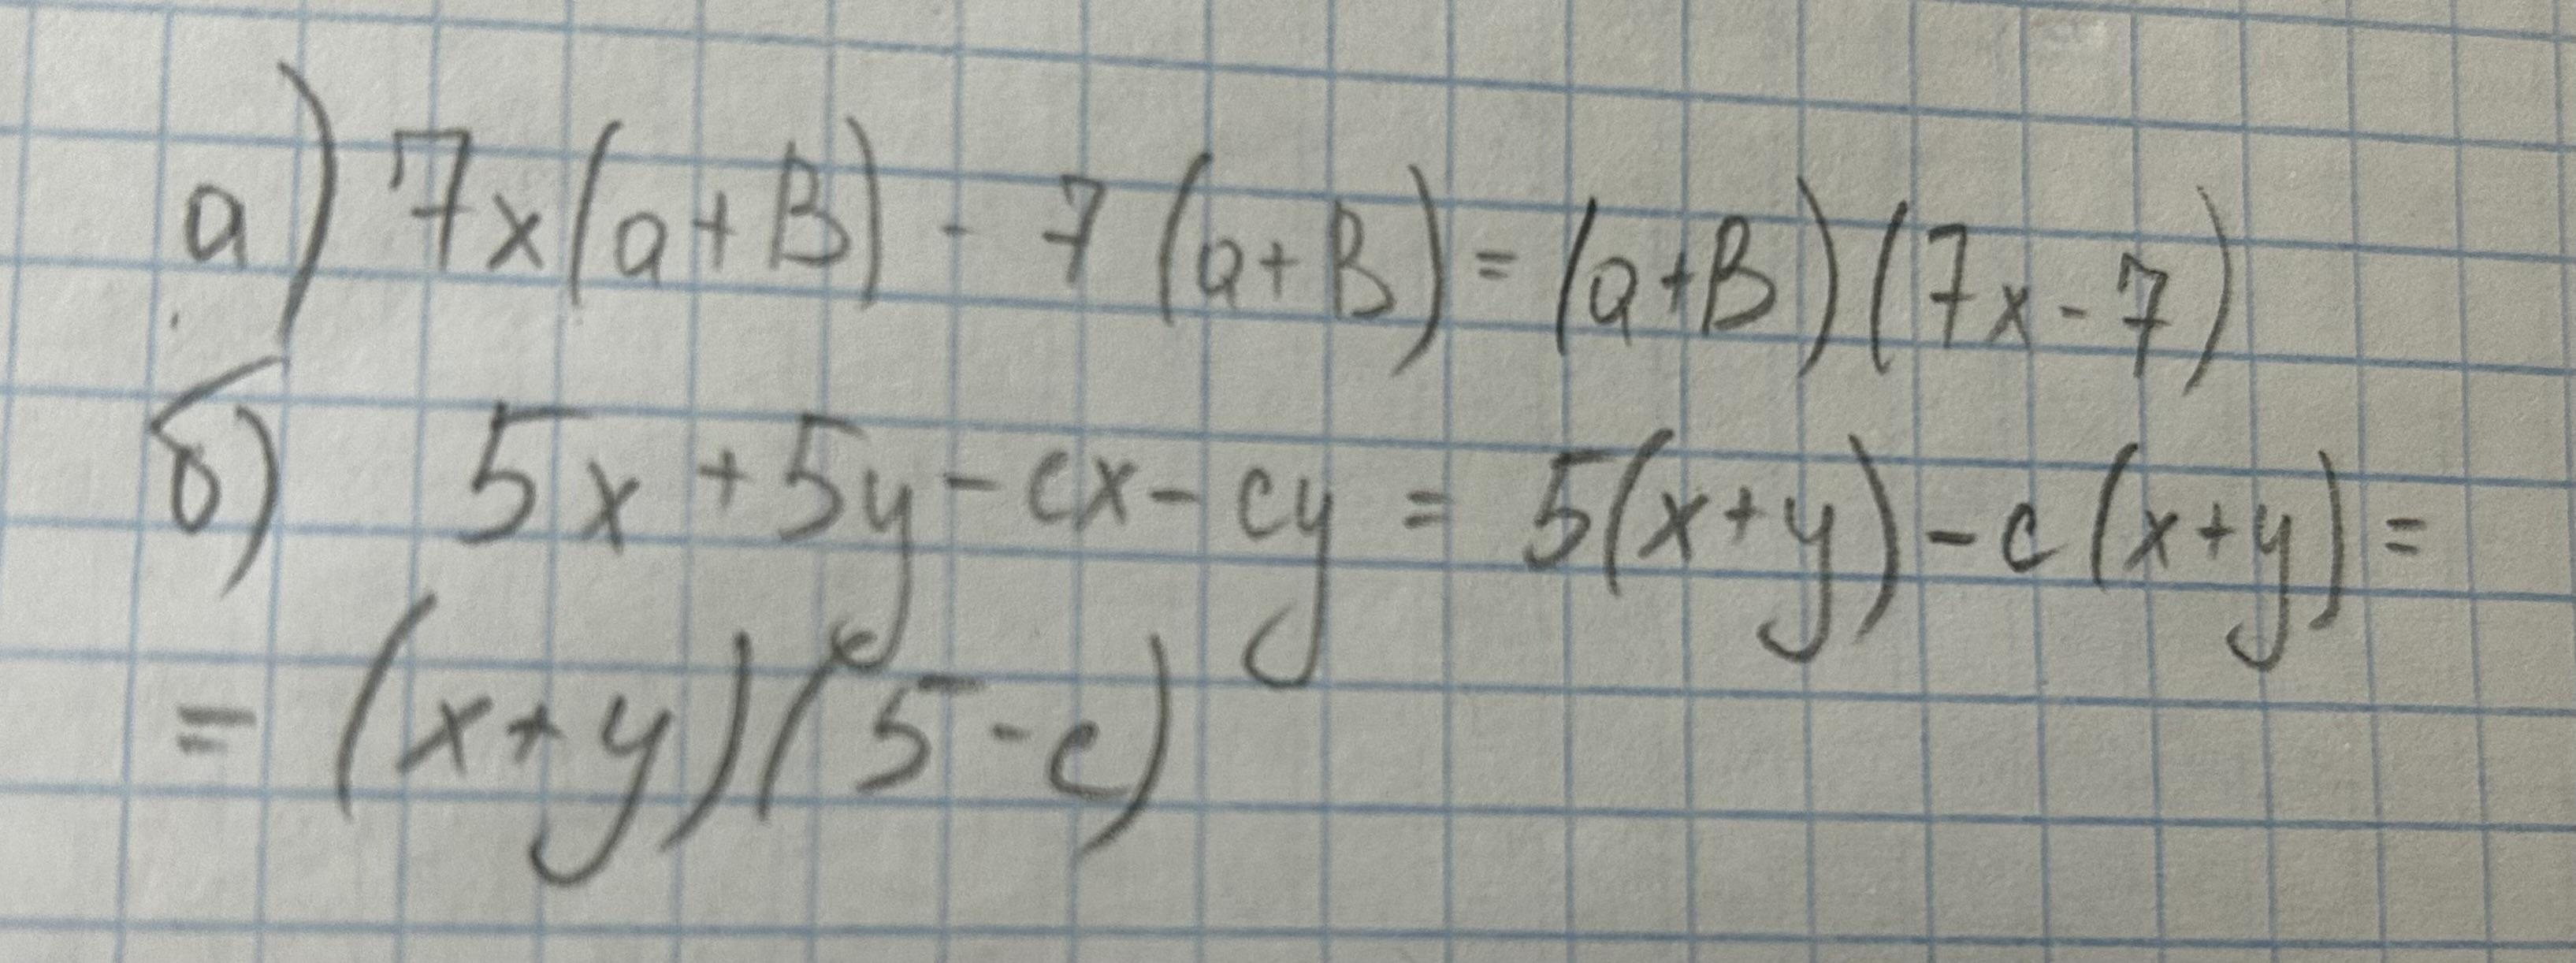 а) 7x(a+B) - 7(a+B) = (a+B)(7x-7)
б) 5x+5y-cx-cy = 5(x+y)-c(x+y)=
= (x+y)(5-c)